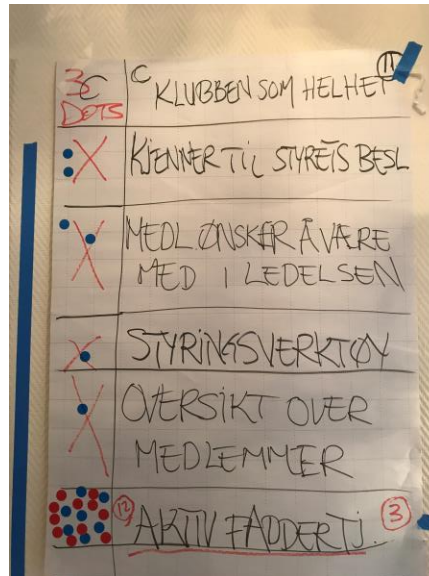 3C
DOTS
C KLUBBEN SOM HELHET
11
KJENNER TIL STYRETS BESL
MEDL ØNSKER Å VÆRE
MED I LEDELSEN
STYRINGSVERKTØY
OVERSIKT OVER
MEDLEMMER
12 AKTIV FADDERTJ. 3